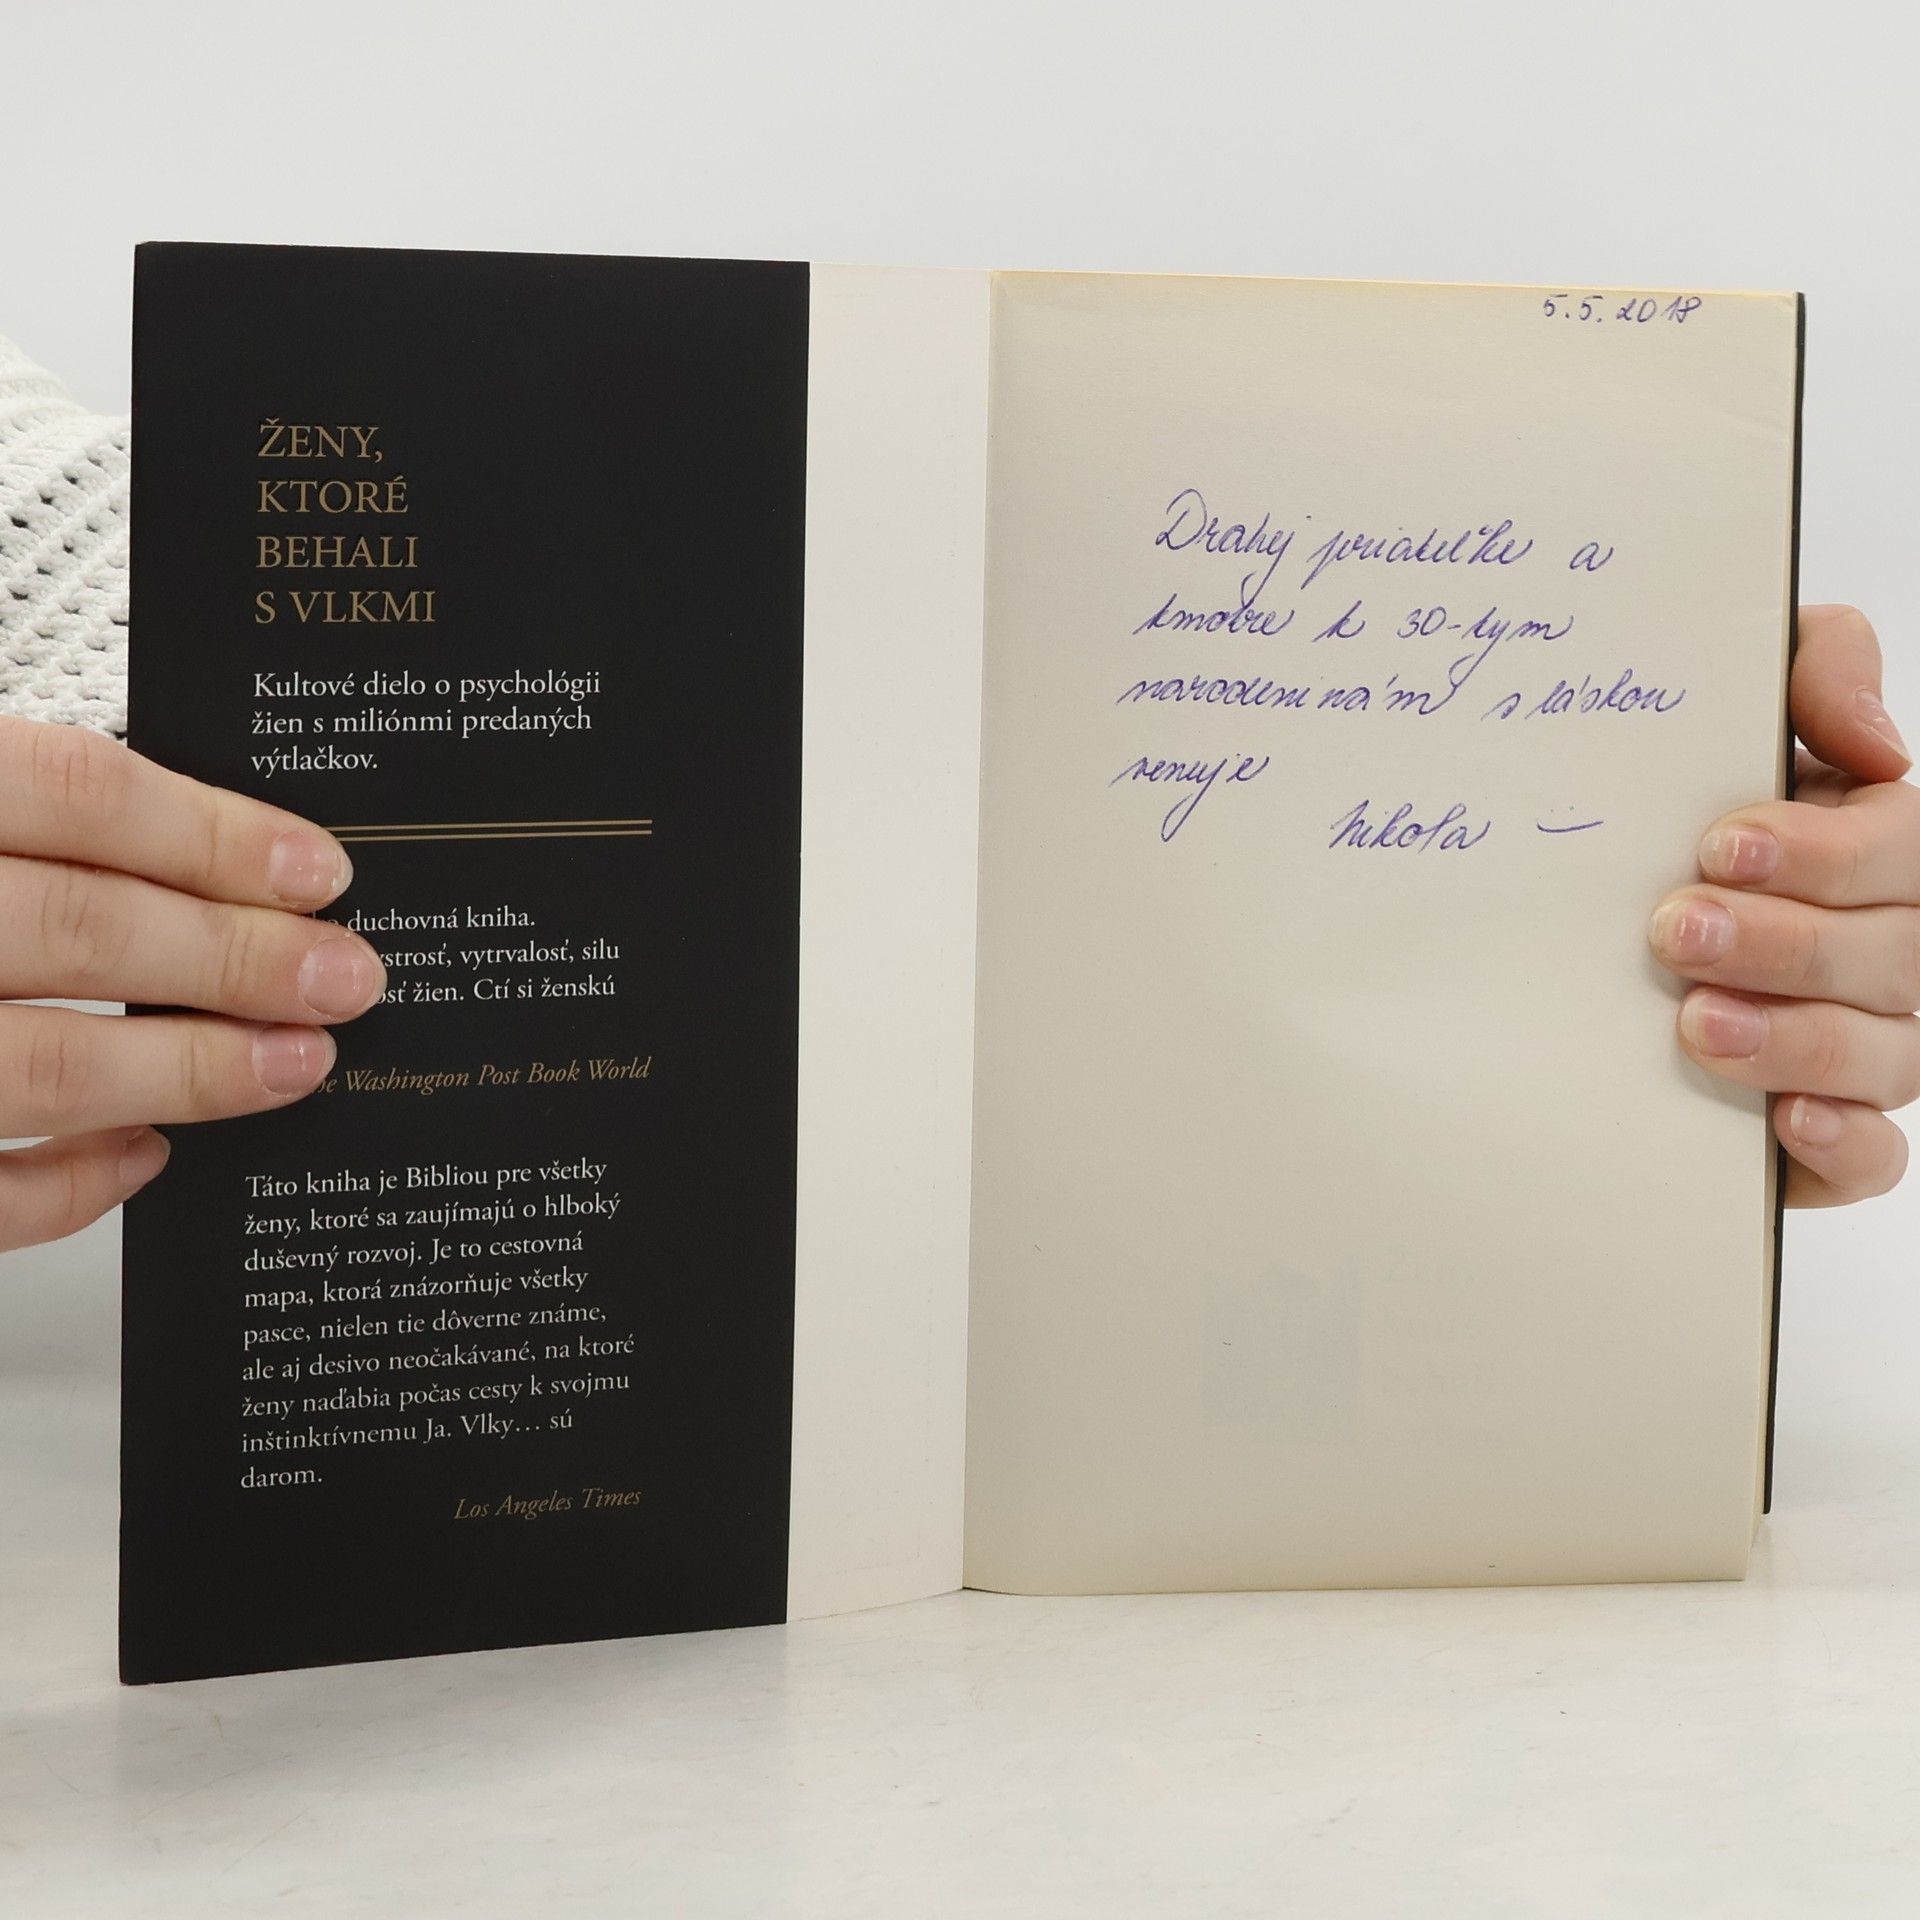 ŽENY,
KTORÉ
BEHALI
S VLKMI
Kultové dielo o psychológii
žien s miliónmi predaných
výtlačkov.
duchovná kniha.
vytrvalosť, silu
žien. Ctí si ženskú
Washington Post Book World
Táto kniha je Bibliou pre všetky
ženy, ktoré sa zaujímajú o hlboký
duševný rozvoj. Je to cestovná
mapa, ktorá znázorňuje všetky
pasce, nielen tie dôverne známe,
ale aj desivo neočakávané, na ktoré
ženy naďabia počas cesty k svojmu
inštinktívnemu Ja. Vlky… sú
darom.
Los Angeles Times
5.5.2018
Drahej priateľke a
kmotre k 30-tym
narodeninám s láskou
venuje
Nikola